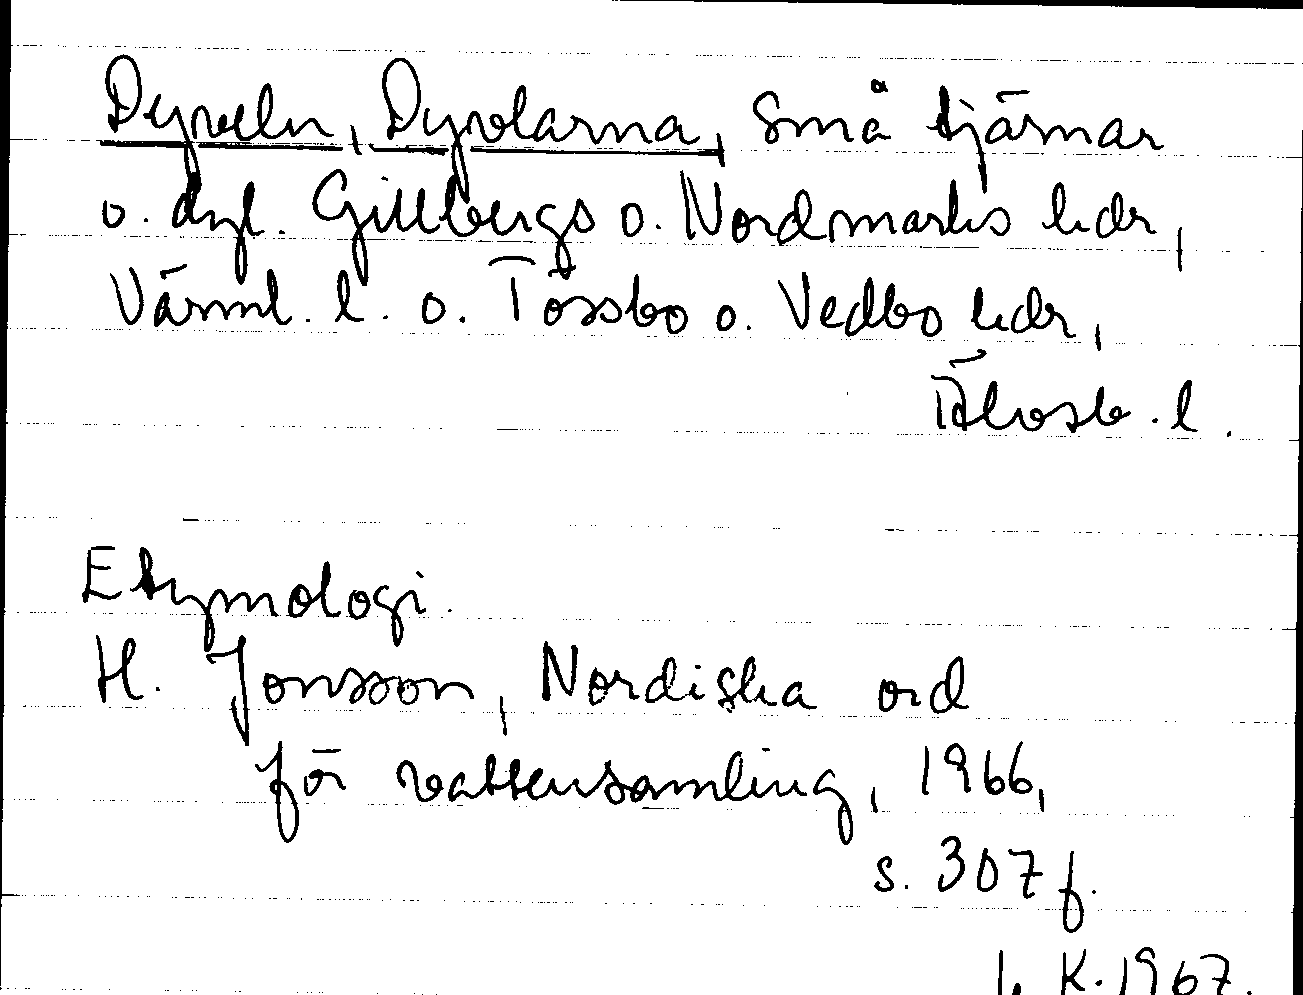 Dyveln, Dyvlarna, små tjärnar
o. dyl. Gillbergs o. Nordmarks hdr,
Värml. l. o. Tössbo o. Vedbo hdr,
Älvsb. l.
Etymologi.
H. Jonsson, Nordiska ord
för vattensamling, 1966,
s. 307 f.
K. 1967.